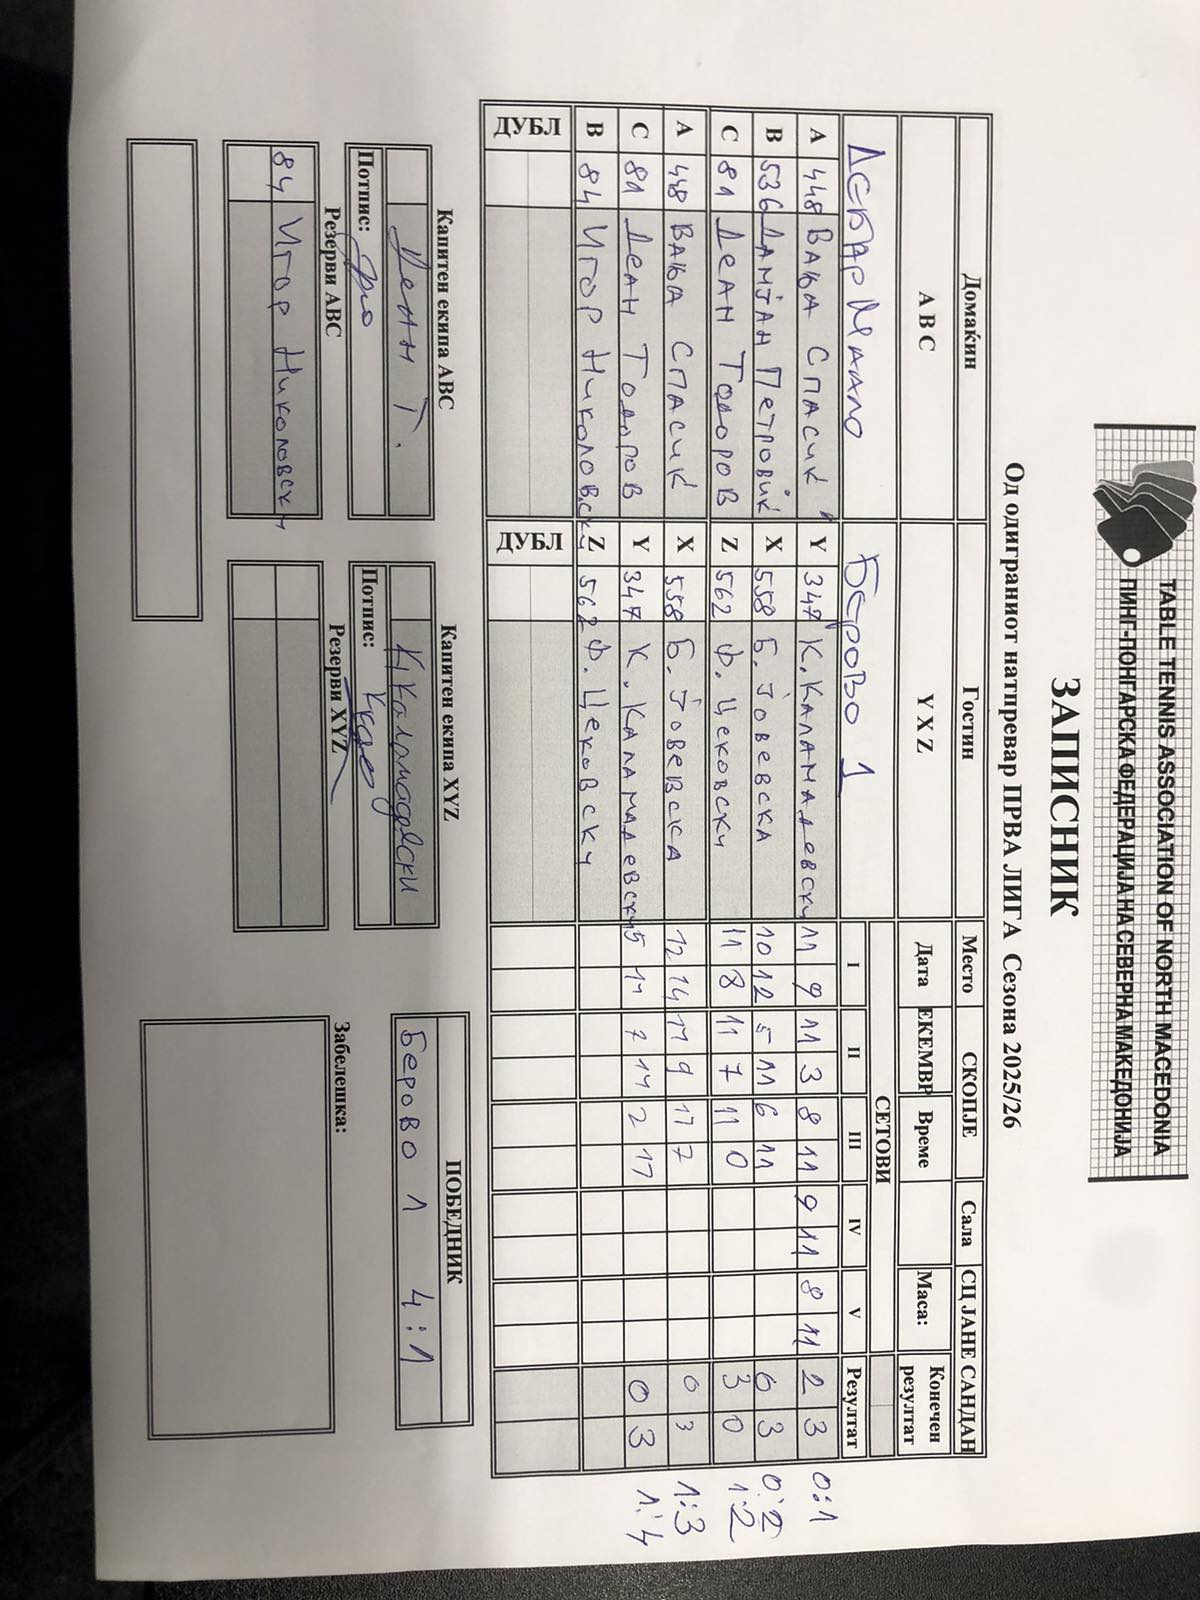 TABLE TENNIS ASSOCIATION OF NORTH MACEDONIA
ПИНГ-ПОНГАРСКА ФЕДЕРАЦИЈА НА СЕВЕРНА МАКЕДОНИЈА
ЗАПИСНИК
Од одиграниот натпревар ПРВА ЛИГА Сезона 2025/26
Домаќин Гостин Место СКОПЈЕ Сала СЦ ЈАНЕ САНДАН
A B C Y X Z Дата ЕКЕМВР Време Маса: Конечен резултат
СЕТОВИ
ДЕБАР МААЛО БЕРОВО 1 I II III IV V Резултат
A 448 ВАЊА СПАСИЌ Y 347 К. КАЛАМАДЕВСКИ 11 9 11 3 8 11 9 11 8 11 2 3 0:1
B 536 ДАМЈАН ПЕТРОВИЌ X 558 Б. ЃОВЕВСКА 10 12 5 11 6 11 0 3 0:2
C 81 ДЕАН ТОДОРОВ Z 562 Ф. ЦЕКОВСКИ 11 8 11 7 11 0 3 0 1:2
A 448 ВАЊА СПАСИЌ X 558 Б. ЃОВЕВСКА 12 14 11 9 17 7 0 3 1:3
C 81 ДЕАН ТОДОРОВ Y 347 К. КАЛАМАДЕВСКИ 5 11 7 11 2 11 0 3 1:4
B 84 ИГОР НИКОЛОВСКИ Z 562 Ф. ЦЕКОВСКИ
ДУБЛ ДУБЛ
Капитен екипа ABC Капитен екипа XYZ ПОБЕДНИК
ДЕАН Т. К Каламадевски БЕРОВО 1 4:1
Потпис: Потпис:
Резерви ABC Резерви XYZ Забелешка:
84 ИГОР НИКОЛОВСКИ